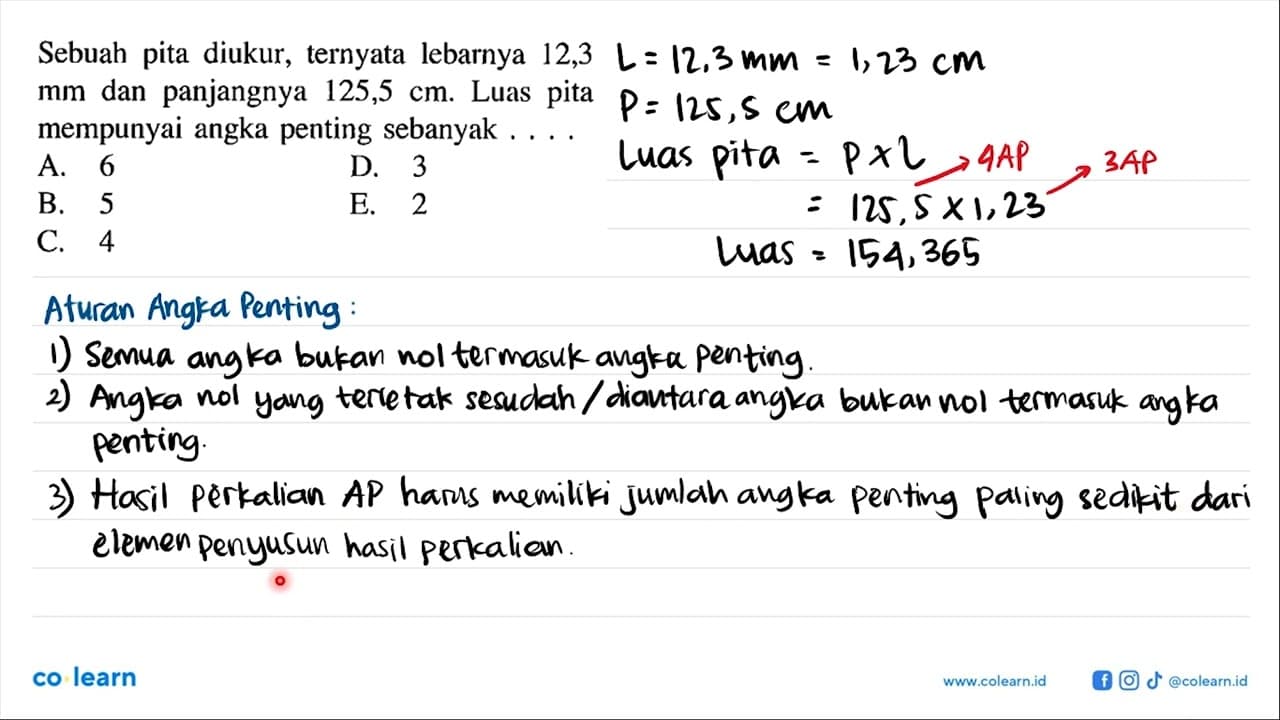 Sebuah pita diukur, ternyata lebarnya 12,3
mm dan panjangnya 125,5 cm. Luas pita
mempunyai angka penting sebanyak . . . .
A. 6 D. 3
B. 5 E. 2
C. 4
L = 12,3 mm = 1,23 cm
P = 125,5 cm
Luas pita = P x L
4AP 3AP
= 125,5 x 1,23
Luas = 154,365
Aturan Angka Penting :
1) Semua angka bukan nol termasuk angka penting.
2) Angka nol yang terletak sesudah/diantara angka bukan nol termasuk angka
penting.
3) Hasil perkalian AP harus memiliki jumlah angka penting paling sedikit dari
elemen penyusun hasil perkalian.
co learn
www.colearn.id @colearn.id